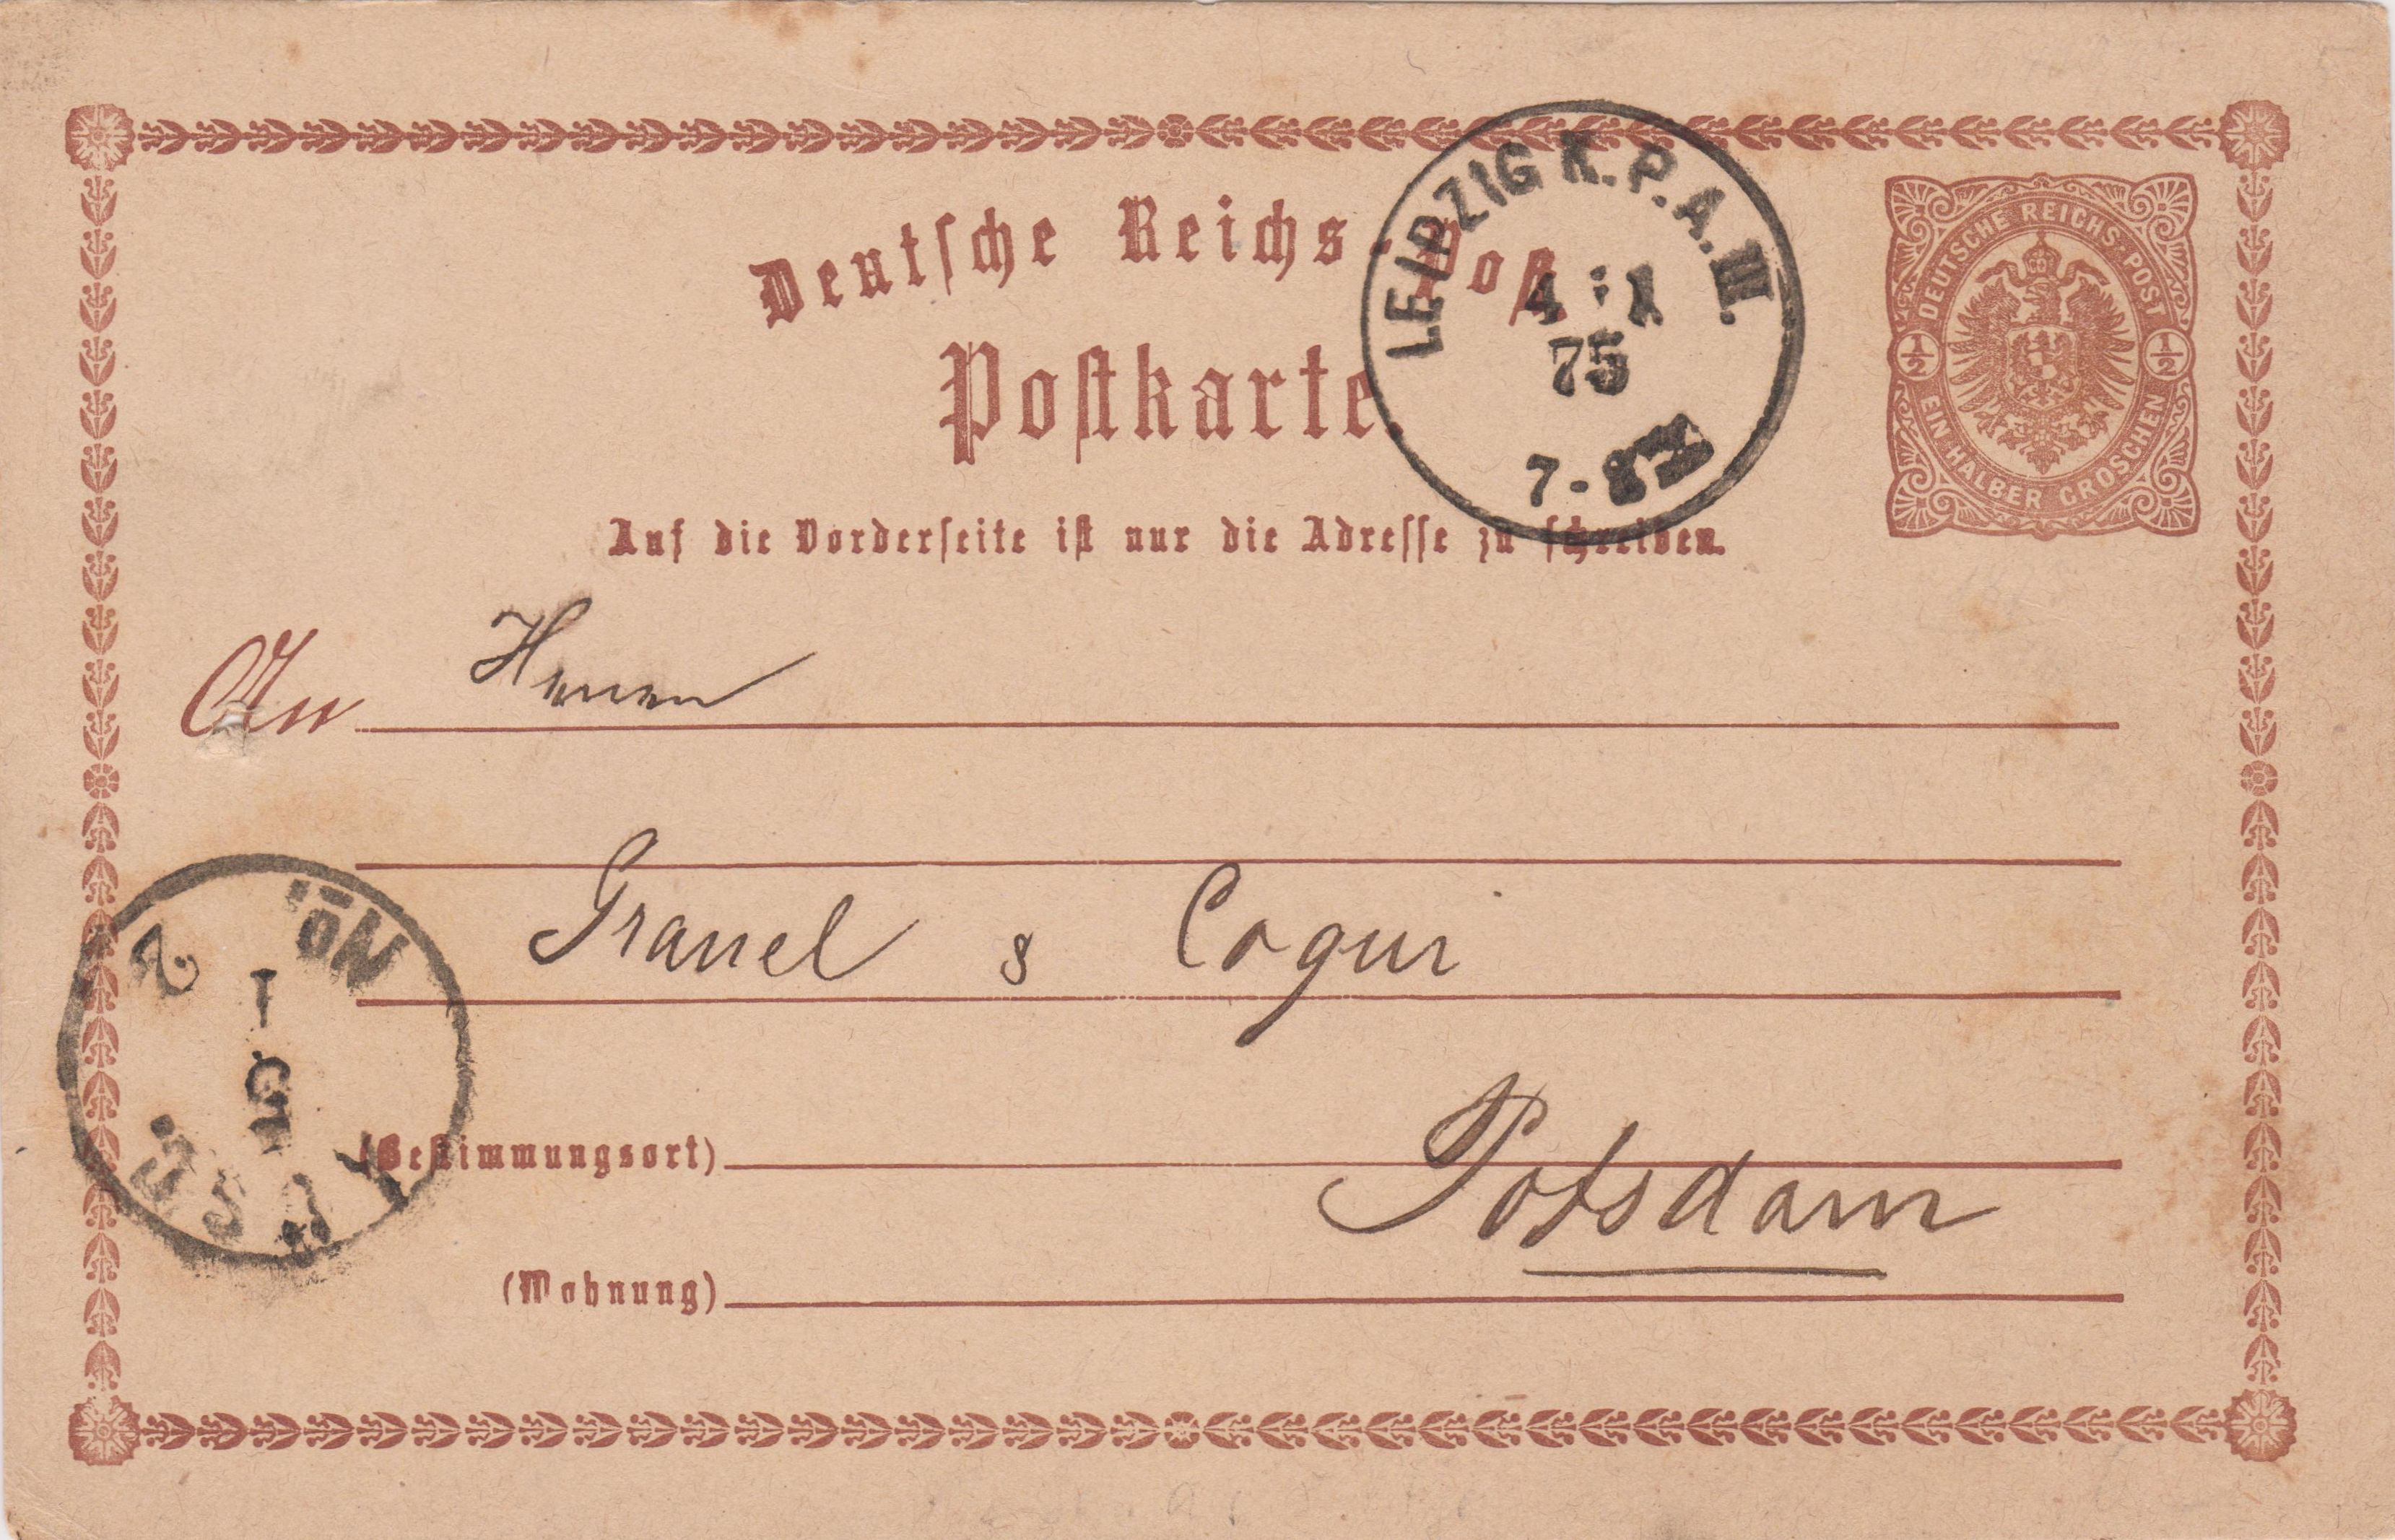 Deutsche Reichs-Post
Postkarte.
LEIPZIG K.P.A.III.
4 1
75
7-8
DEUTSCHE REICHS-POST
1/2 1/2
EIN HALBER GROSCHEN
Auf die Vorderseite ist nur die Adresse zu schreiben.
An Herren
& Coqui
(Bestimmungsort)
Potsdam
(Wohnung)